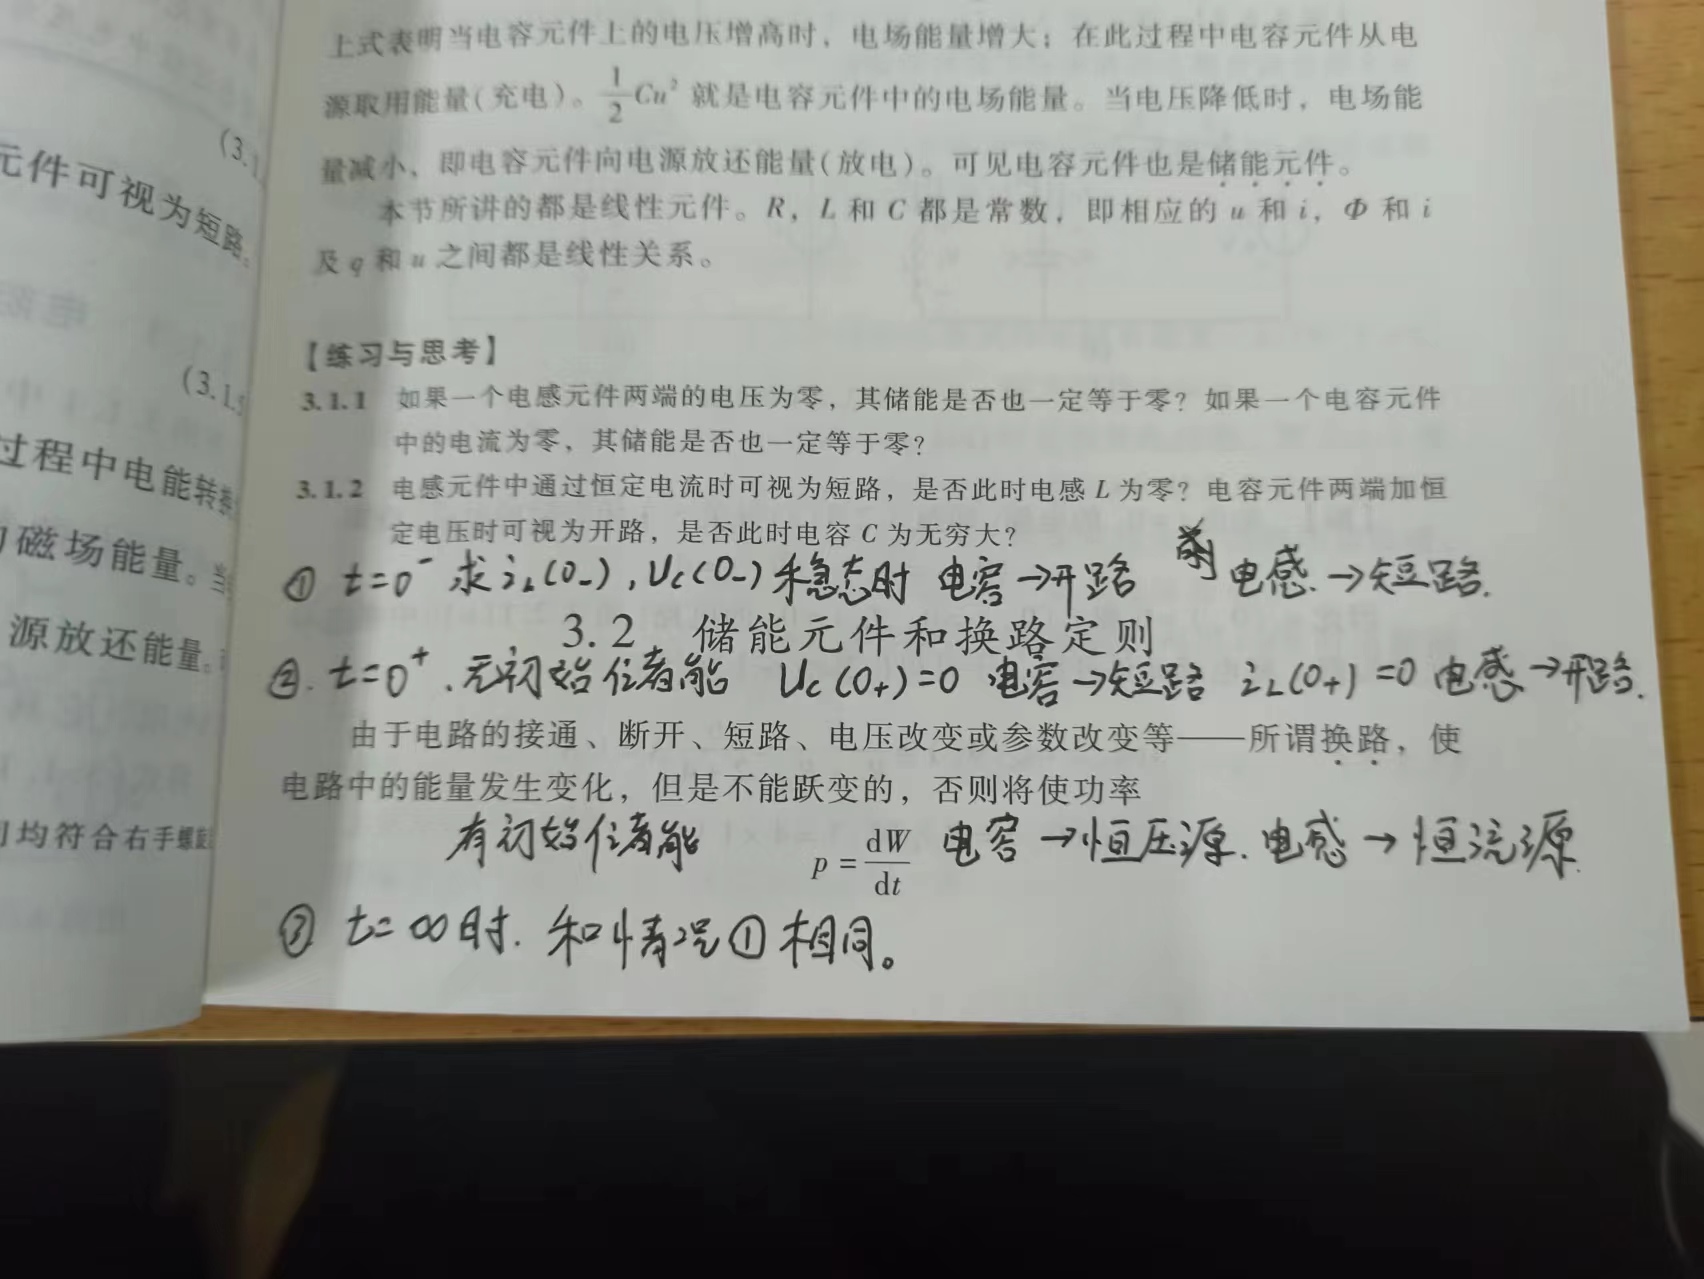 上式表明当电容元件上的电压增高时，电场能量增大；在此过程中电容元件从电
源取用能量(充电)。1/2 Cu² 就是电容元件中的电场能量。当电压降低时，电场能
量减小，即电容元件向电源放还能量(放电)。可见电容元件也是储能元件。
本节所讲的都是线性元件。R，L 和 C 都是常数，即相应的 u 和 i，Φ 和 i
及 q 和 u 之间都是线性关系。
(3.1
元件可视为短路。
(3.1.
过程中电能转换
磁场能量。当
源放还能量。
均符合右手螺旋
【练习与思考】
3.1.1 如果一个电感元件两端的电压为零，其储能是否也一定等于零？如果一个电容元件
中的电流为零，其储能是否也一定等于零？
3.1.2 电感元件中通过恒定电流时可视为短路，是否此时电感 L 为零？电容元件两端加恒
定电压时可视为开路，是否此时电容 C 为无穷大？
① t=0⁻ 求 iL(0-), Uc(0-) 稳态时 电容→开路 电感→短路.
3.2 储能元件和换路定则
②. t=0⁺. 无初始储能 Uc(0+)=0 电容→短路 iL(0+)=0 电感→开路.
由于电路的接通、断开、短路、电压改变或参数改变等——所谓换路，使
电路中的能量发生变化，但是不能跃变的，否则将使功率
有初始储能 p = dW/dt 电容→恒压源. 电感→恒流源.
③ t=∞时. 和情况①相同。